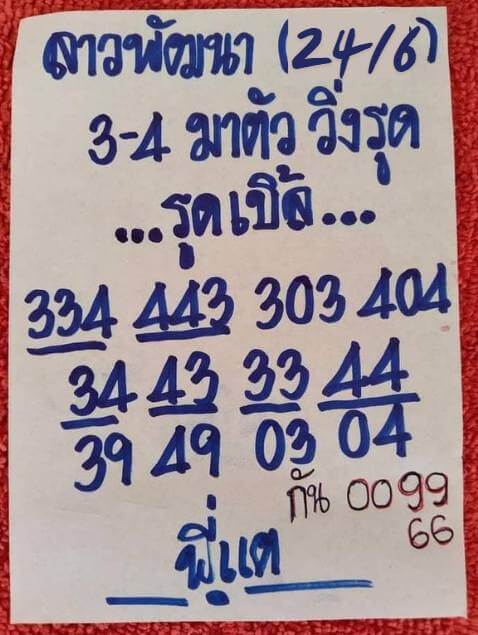 ลาวพัฒนา (24/6)
3-4 มาตัว วิ่งรูด
...รูดเบิ้ล...
334 443 303 404
34 43 33 44
39 49 03 04
กัน 0099
66
พี่แต